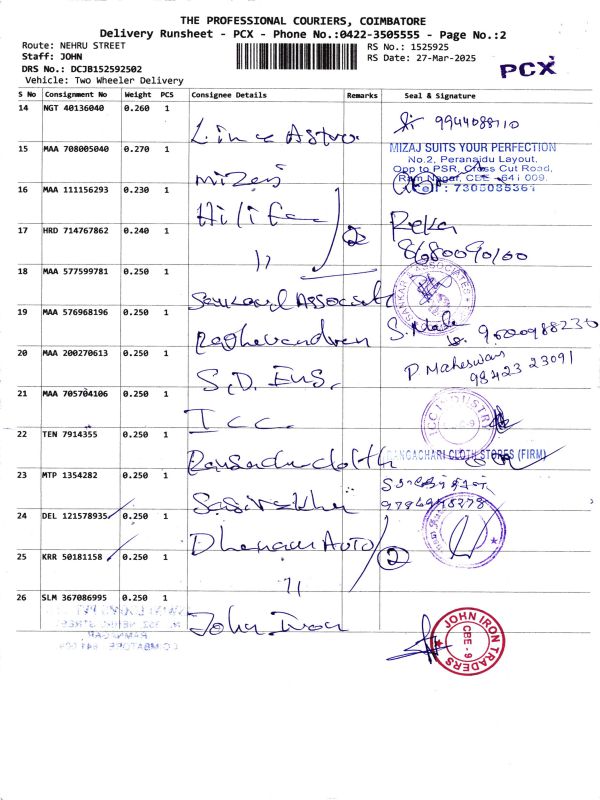 THE PROFESSIONAL COURIERS, COIMBATORE
Delivery Runsheet - PCX - Phone No.:0422-3505555 - Page No.:2
Route: NEHRU STREET
Staff: JOHN
DRS No.: DCJB152592502
Vehicle: Two Wheeler Delivery
RS No.: 1525925
RS Date: 27-Mar-2025
PCX
S No Consignment No Weight PCS Consignee Details Remarks Seal & Signature
14 NGT 40136040 0.260 1 9944088110
15 MAA 708005040 0.270 1 Mizaj
MIZAJ SUITS YOUR PERFECTION
No.2, Peranaidu Layout,
Opp to PSR, Cross Cut Road,
Ram Nagar, CBE - 641 009.
Cell : 7305085361
16 MAA 111156293 0.230 1
17 HRD 714767862 0.240 1 11 2 Reka
8680090100
18 MAA 577599781 0.250 1 Sankar Associate
SANKAR ASSOCIATES
19 MAA 576968196 0.250 1 Raghavendran S.
20 MAA 200270613 0.250 1 S.D. Ens. P Maheswari
98423 23091
21 MAA 705704106 0.250 1 Icc.
ICC INDUSTRY
22 TEN 7914355 0.250 1 cloth RANGACHARI CLOTH STORES (FIRM)
23 MTP 1354282 0.250 1
24 DEL 121578935 0.250 1 Dhanam Auto
25 KRR 50181158 0.250 1 11 2
26 SLM 367086995 0.250 1 John Iron
JOHN IRON TRADERS
CBE - 9
NEHRU STREET
RAMNAGAR
COIMBATORE - 641 009